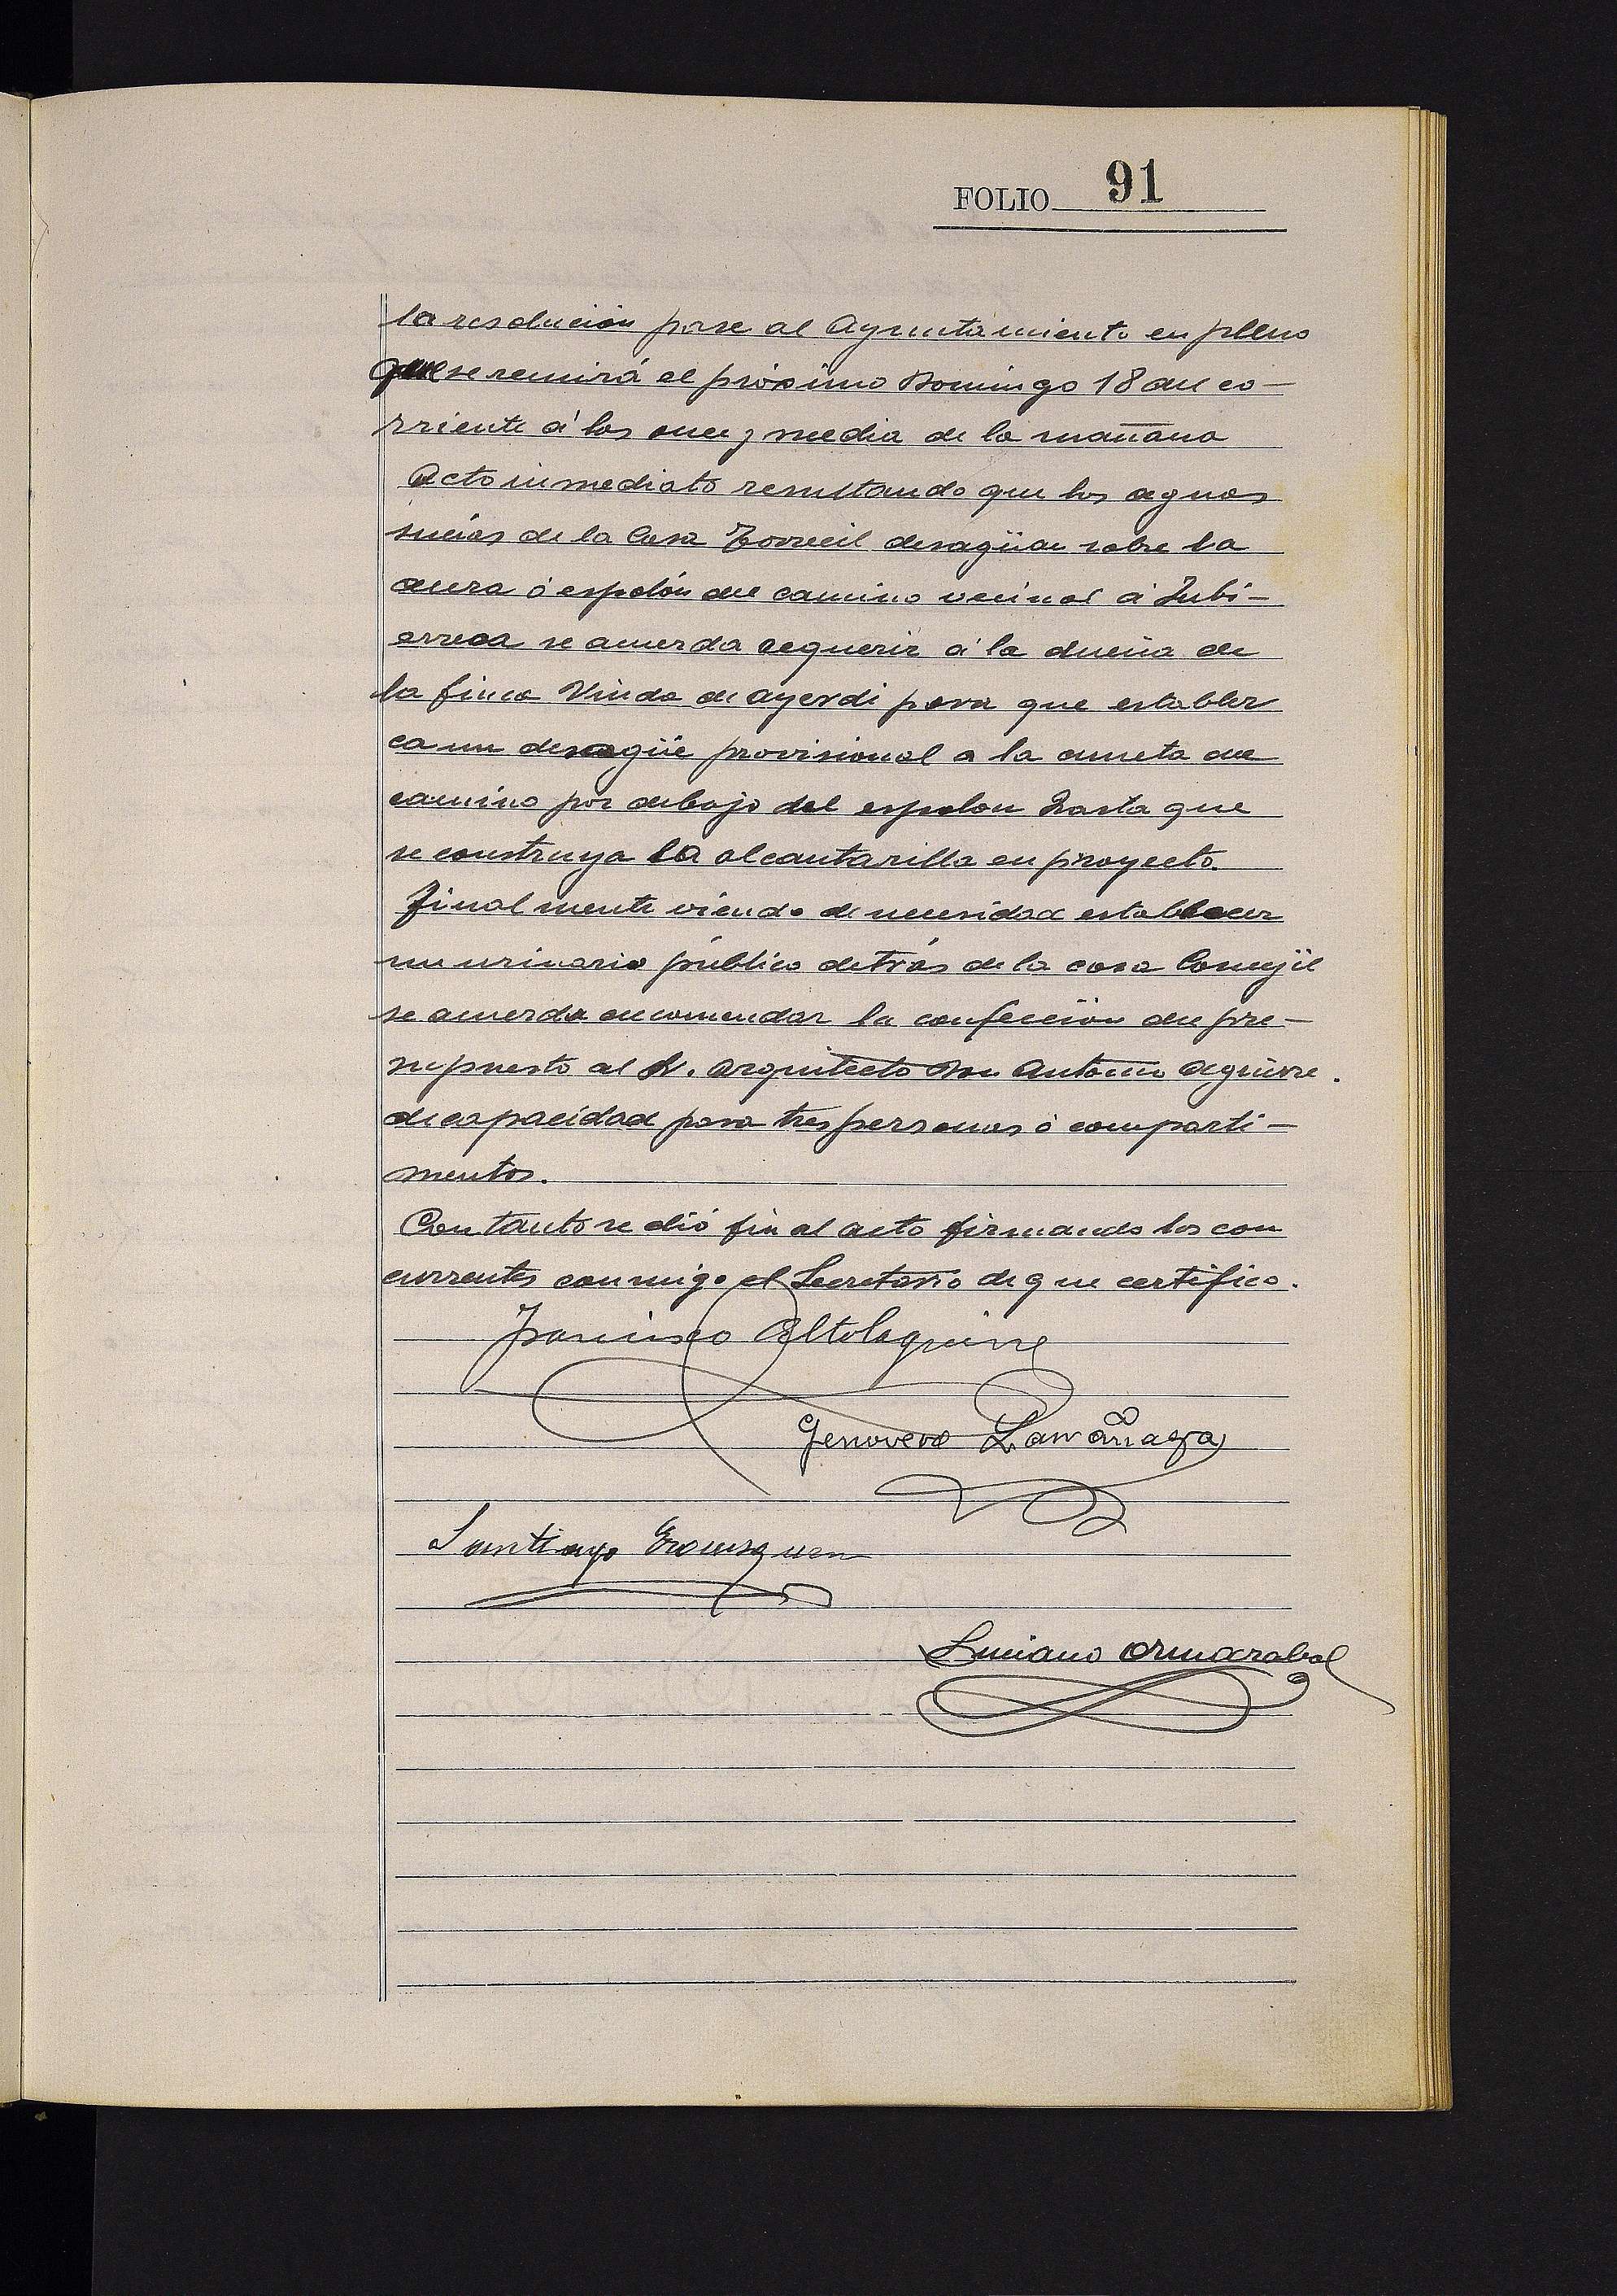 FOLIO 91
la resolución pase al Ayuntamiento en pleno
que se reunirá el próximo Domingo 18 del co-
rriente á las once y media de la mañana
Acto inmediato resultando que las aguas
sucias de la Casa Torrecil desagüan sobre la
acera ó espolón del camino vecinal á Zubi-
erreca se acuerda requerir á la dueña de
la finca Viuda de Ayerdi para que establez
ca un desagüe provisional a la cuneta del
camino por debajo del espolon hasta que
se construya la alcantarilla en proyecto.
Finalmente viendo de necesidad establecer
un urinario público detrás de la casa Concejil
se acuerda encomendar la confección del pre-
supuesto al Sr. Arquitecto Don Antonio Aguirre.
de capacidad para tres personas ó comparti-
mentos.
Con tanto se dió fin al acto firmando los con
currentes conmigo el Secretario de que certifico.
Francisco Altolaguirre
Genovevo Larrañaga
Santiago
Luciano Ormazabal